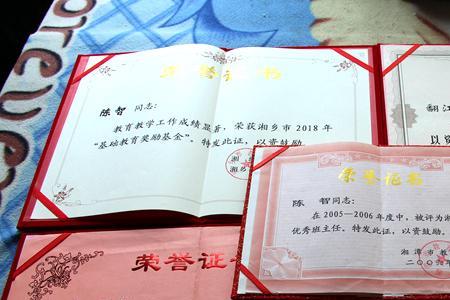 荣誉证书
陈智 同志:
教育教学工作成绩显著,荣获湘乡市2018年
“基础教育奖励基金”。特发此证,以资鼓励。
湘
湘乡
翻江
以资
荣誉证书
陈 智同志:
在2005—2006年度中,被评为湘
优秀班主任。特发此证,以资鼓励。
湘潭市教
二〇〇六年
荣誉证书